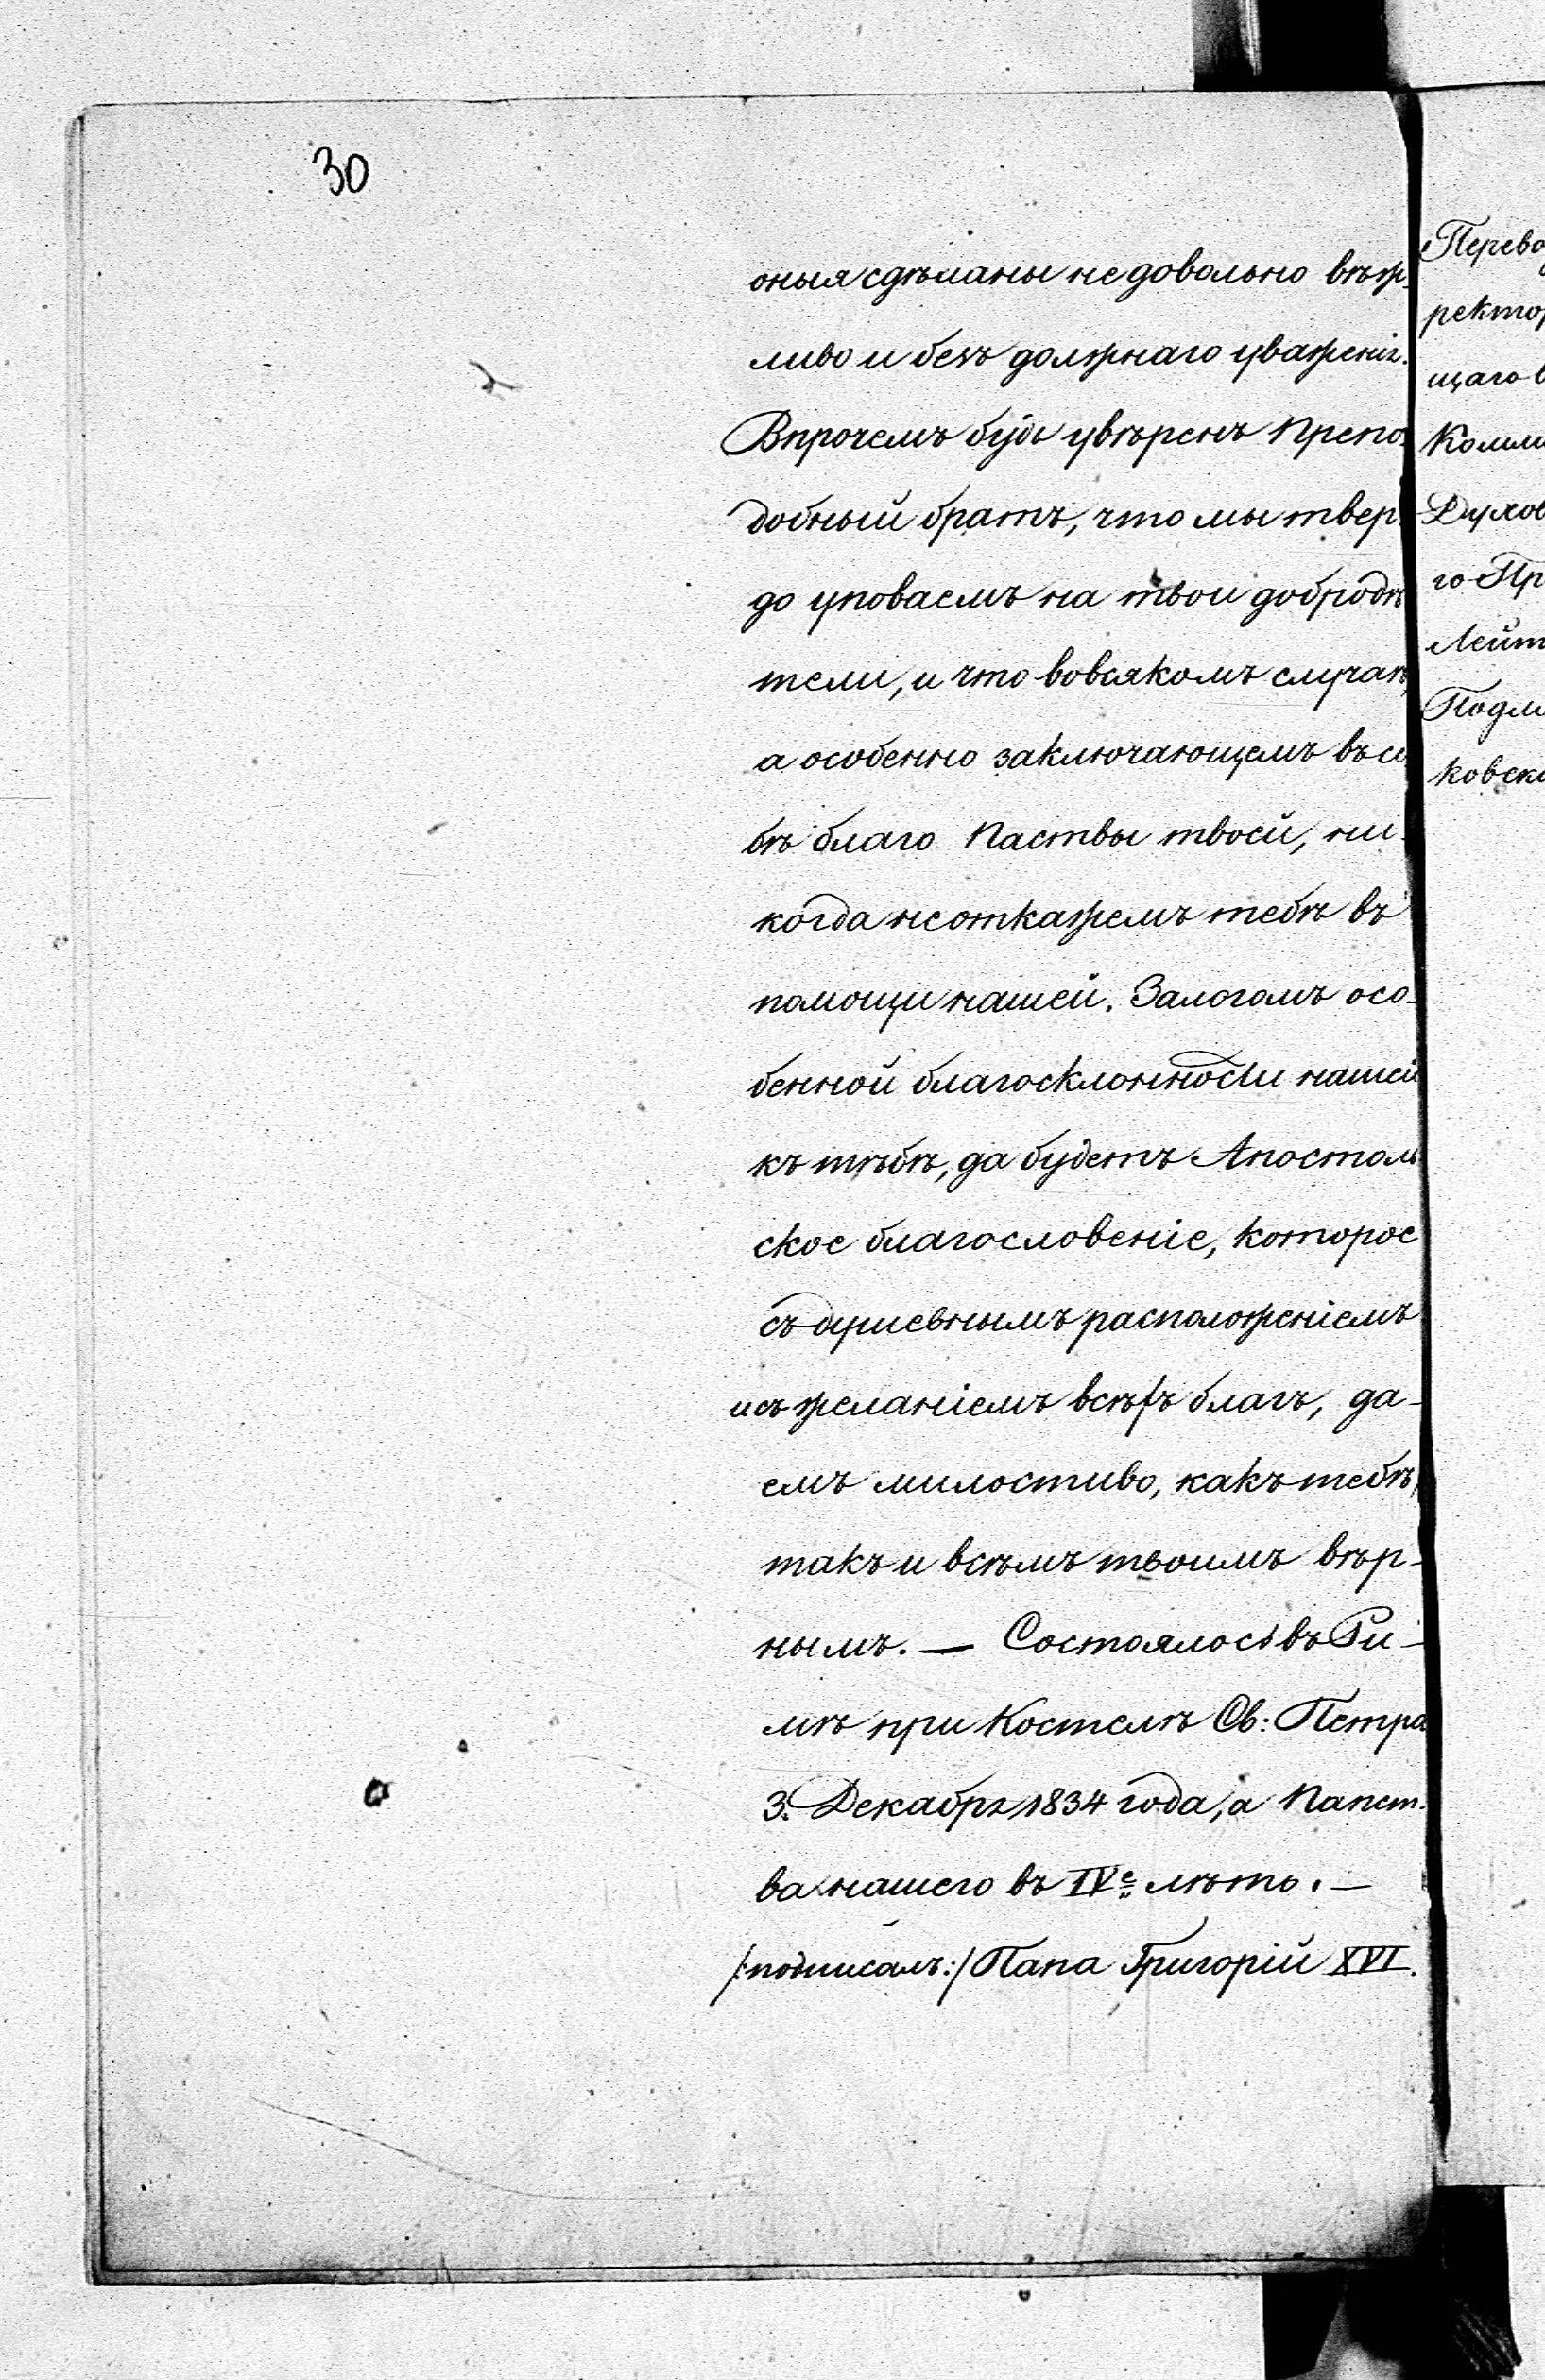 30
оныя сдѣланы не довольно вѣж-
ливо и безъ должнаго уваженія.
Впрочемъ будь увѣренъ Препо-
добный братъ, что мы твер-
до уповаемъ на твои добродѣ
тели, и что вовсякомъ случаѣ,
а особенно заключающемъ въ се
бѣ благо Паствы твоей, ни-
когда не откажемъ тебѣ въ
помощи нашей. Залогомъ осо-
бенной благосклонности нашей
къ тѣбѣ, да будетъ Апостоль
ское благословеніе, которое
съ душевнымъ расположеніемъ
и съ желаніемъ всѣхъ благъ, да-
емъ милостиво, какъ тебѣ,
такъ и всѣмъ твоимъ вѣр-
нымъ. — Состоялось въ Ри-
мѣ при Костелѣ Св: Петра
3. Декабря 1834 года, а Папст-
ва нашего въ IVе лѣто. —
/:подписалъ:/ Папа Григорій XVI.
Перево
ректор
щаго в
Комми
Духов
го Пр
Лейт
Подли
ковски